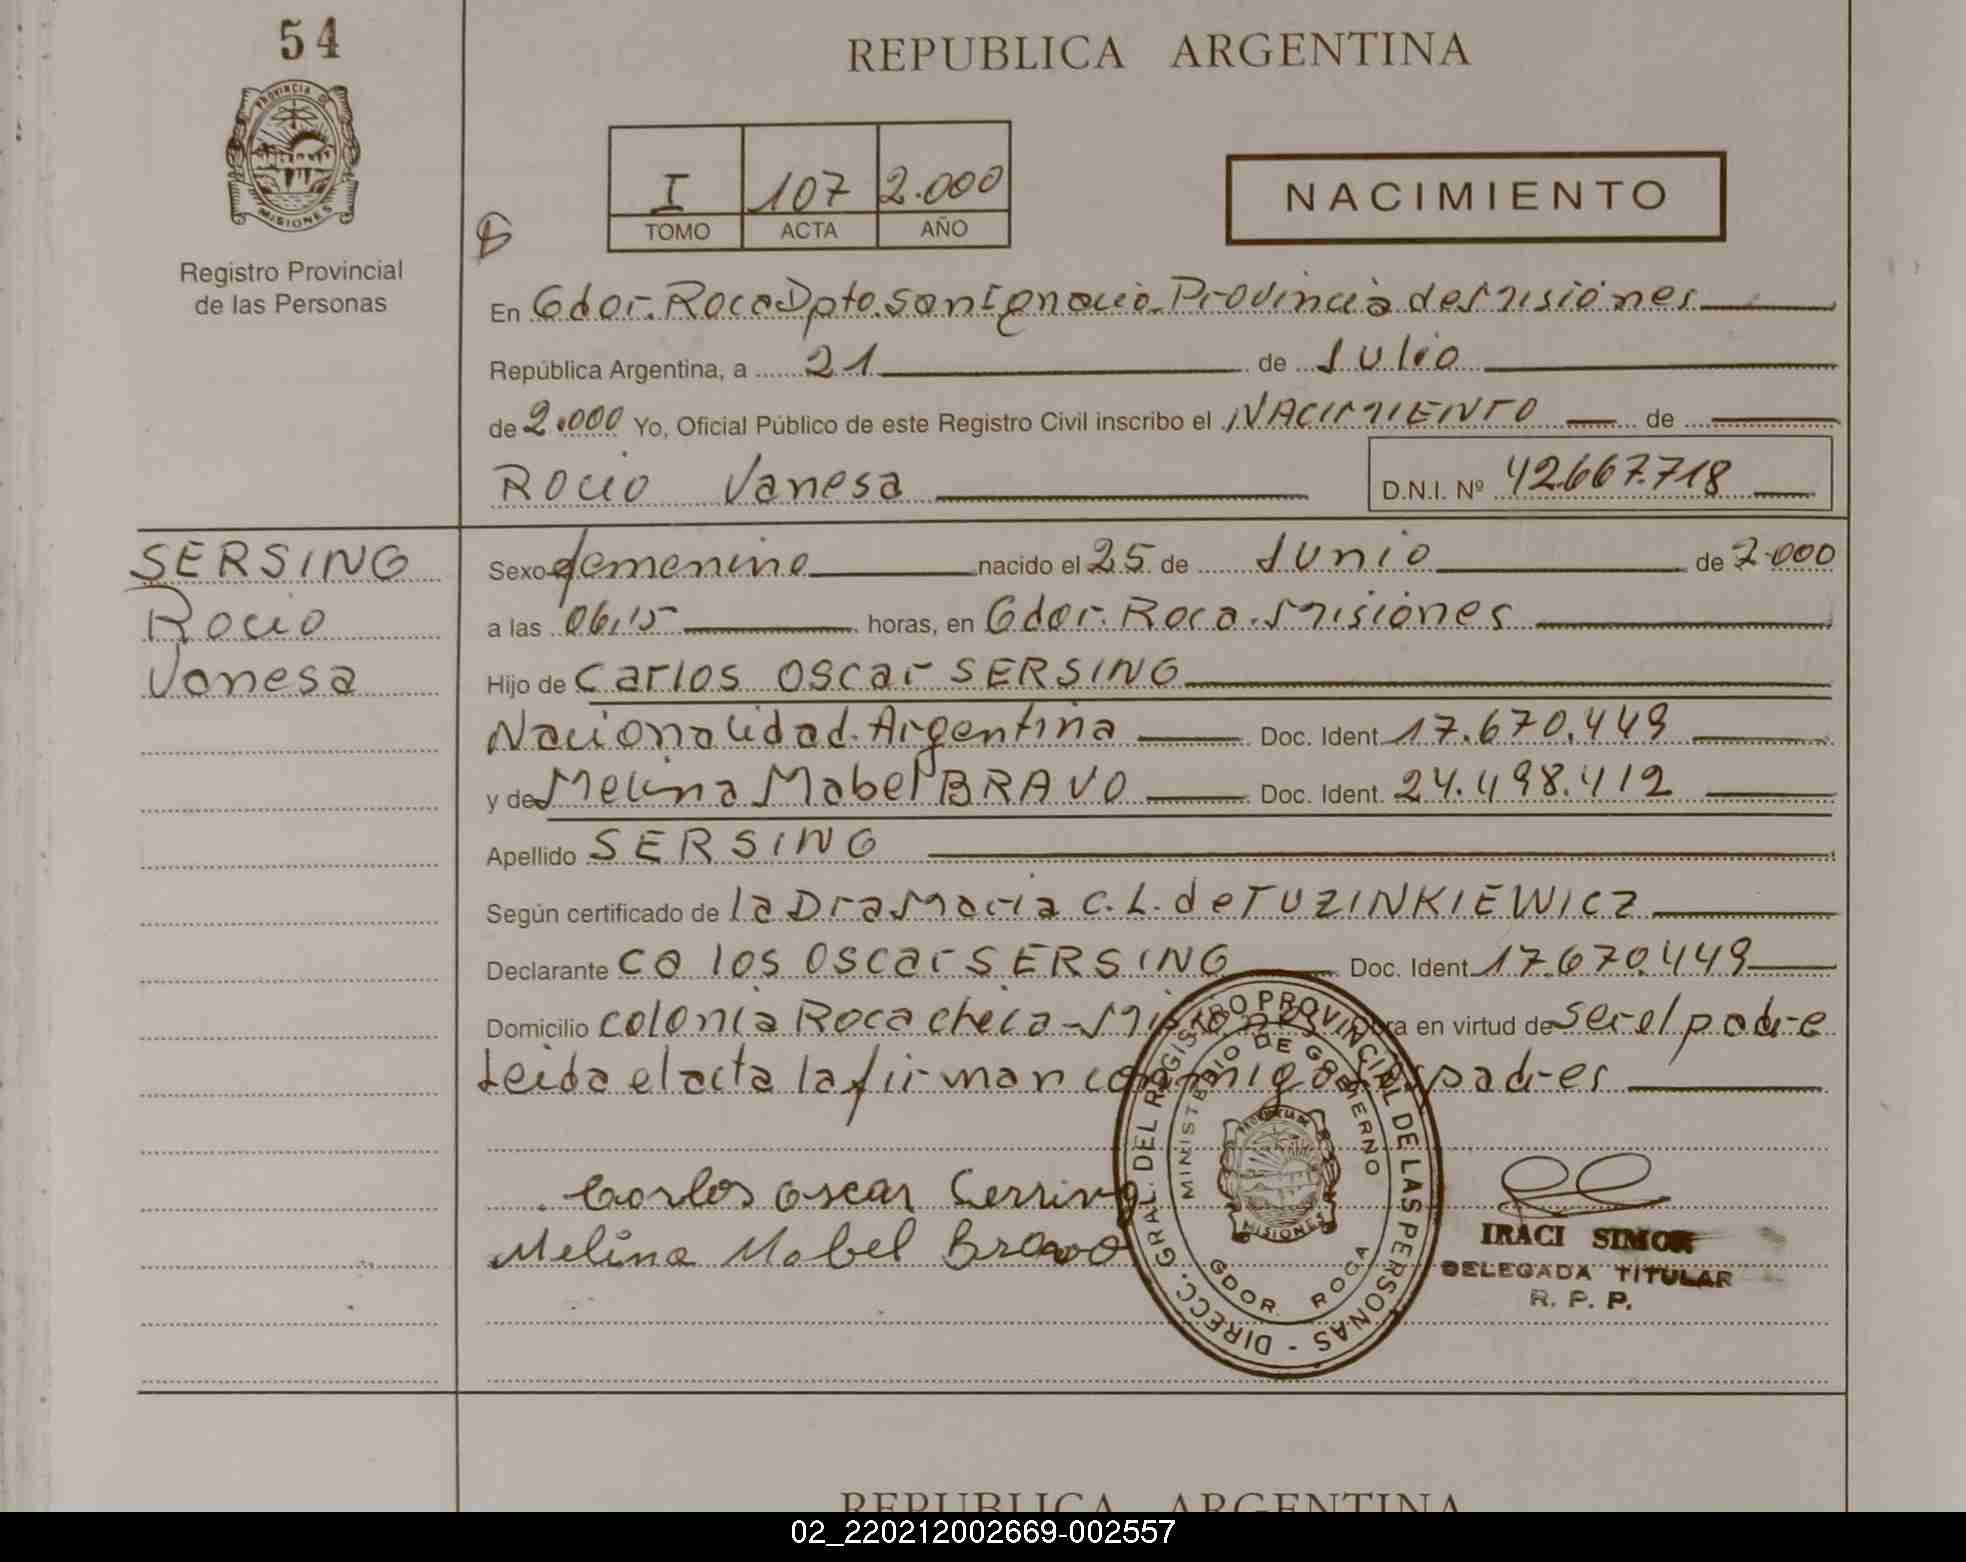 54
REPUBLICA ARGENTINA
PROVINCIA DE
MISIONES
Registro Provincial
de las Personas
I 107 2.000
TOMO ACTA AÑO
NACIMIENTO
En Gdor. Roca Dpto. San Ignacio. Provincia de Misiones
República Argentina, a 21 de Julio
de 2.000 Yo, Oficial Público de este Registro Civil inscribo el NACIMIENTO de
Rocio Vanesa D.N.I. Nº 42.667.718
SERSING
Rocio
Vanesa
Sexo femenino nacido el 25 de Junio de 2.000
a las 06,15 horas, en Gdor. Roca. Misiones
Hijo de Carlos Oscar SERSING
Nacionalidad. Argentina Doc. Ident. 17.670.449
y de Melina Mabel BRAVO Doc. Ident. 24.498.412
Apellido SERSING
Según certificado de la Dra Maria C. L. de TUZINKIEWICZ
Declarante Calos Oscar SERSING Doc. Ident. 17.670.449
Domicilio colonia Roca chica - Misiones Obra en virtud de ser el padre
Leida el acta la firman conmigo los padres
Carlos Oscar Sersing
Melina Mabel Bravo
DIRECC. GRAL. DEL REGISTRO PROVINCIAL DE LAS PERSONAS -
MINISTERIO DE GOBIERNO
MISIONES
GDOR. ROCA
IRACI SIMON
DELEGADA TITULAR
R. P. P.
REPUBLICA ARGENTINA
02_220212002669-002557